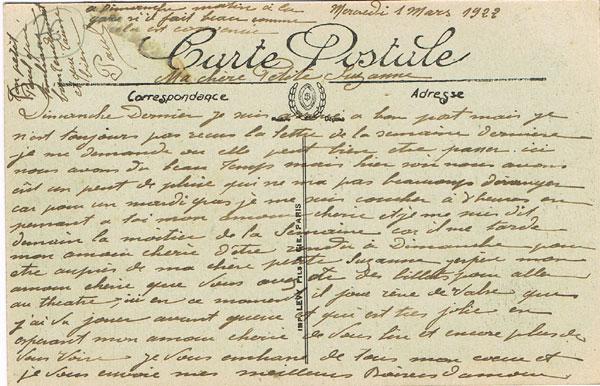 a Dimanche matin a la
gare si il fait beau comme
cela est convenue
Mercredi 1 Mars 1922
Carte Postale
Ma chère Petite Suzanne
Correspondance
Adresse
Dimanche Dernier je suis arrivé a bon port mais je
n'est toujours pas recus la lettre de la semaine dernière
je me demande ou elle peut bien etre passer ici
nous avons du beau temps mais hier soir nous avons
eut un peut de pluie qui ne ma pas beaucoup déranger
car pour un mardi gras je me suis coucher a 7 heures en
pensant a toi mon amour cherie et je me suis dit
demain la moitier de la Semaine car il me tarde
mon amour cherie d'etre rendu a dimanche pour
etre auprès de ma chère petite Suzanne j'espère mon
amour cherie que vous avez des billets pour aller
au theatre ici en ce moment il joue rêve de valse que
j'ai vu jouer avant guerre et qui est très jolie en
esperant mon amour cherie de vous lire et encore plus de
vous voire je vous embrasse de tous mon coeur et
je vous envoie mes meilleurs Baisers d'amour
IMP. LEVY FILS & CIE, PARIS